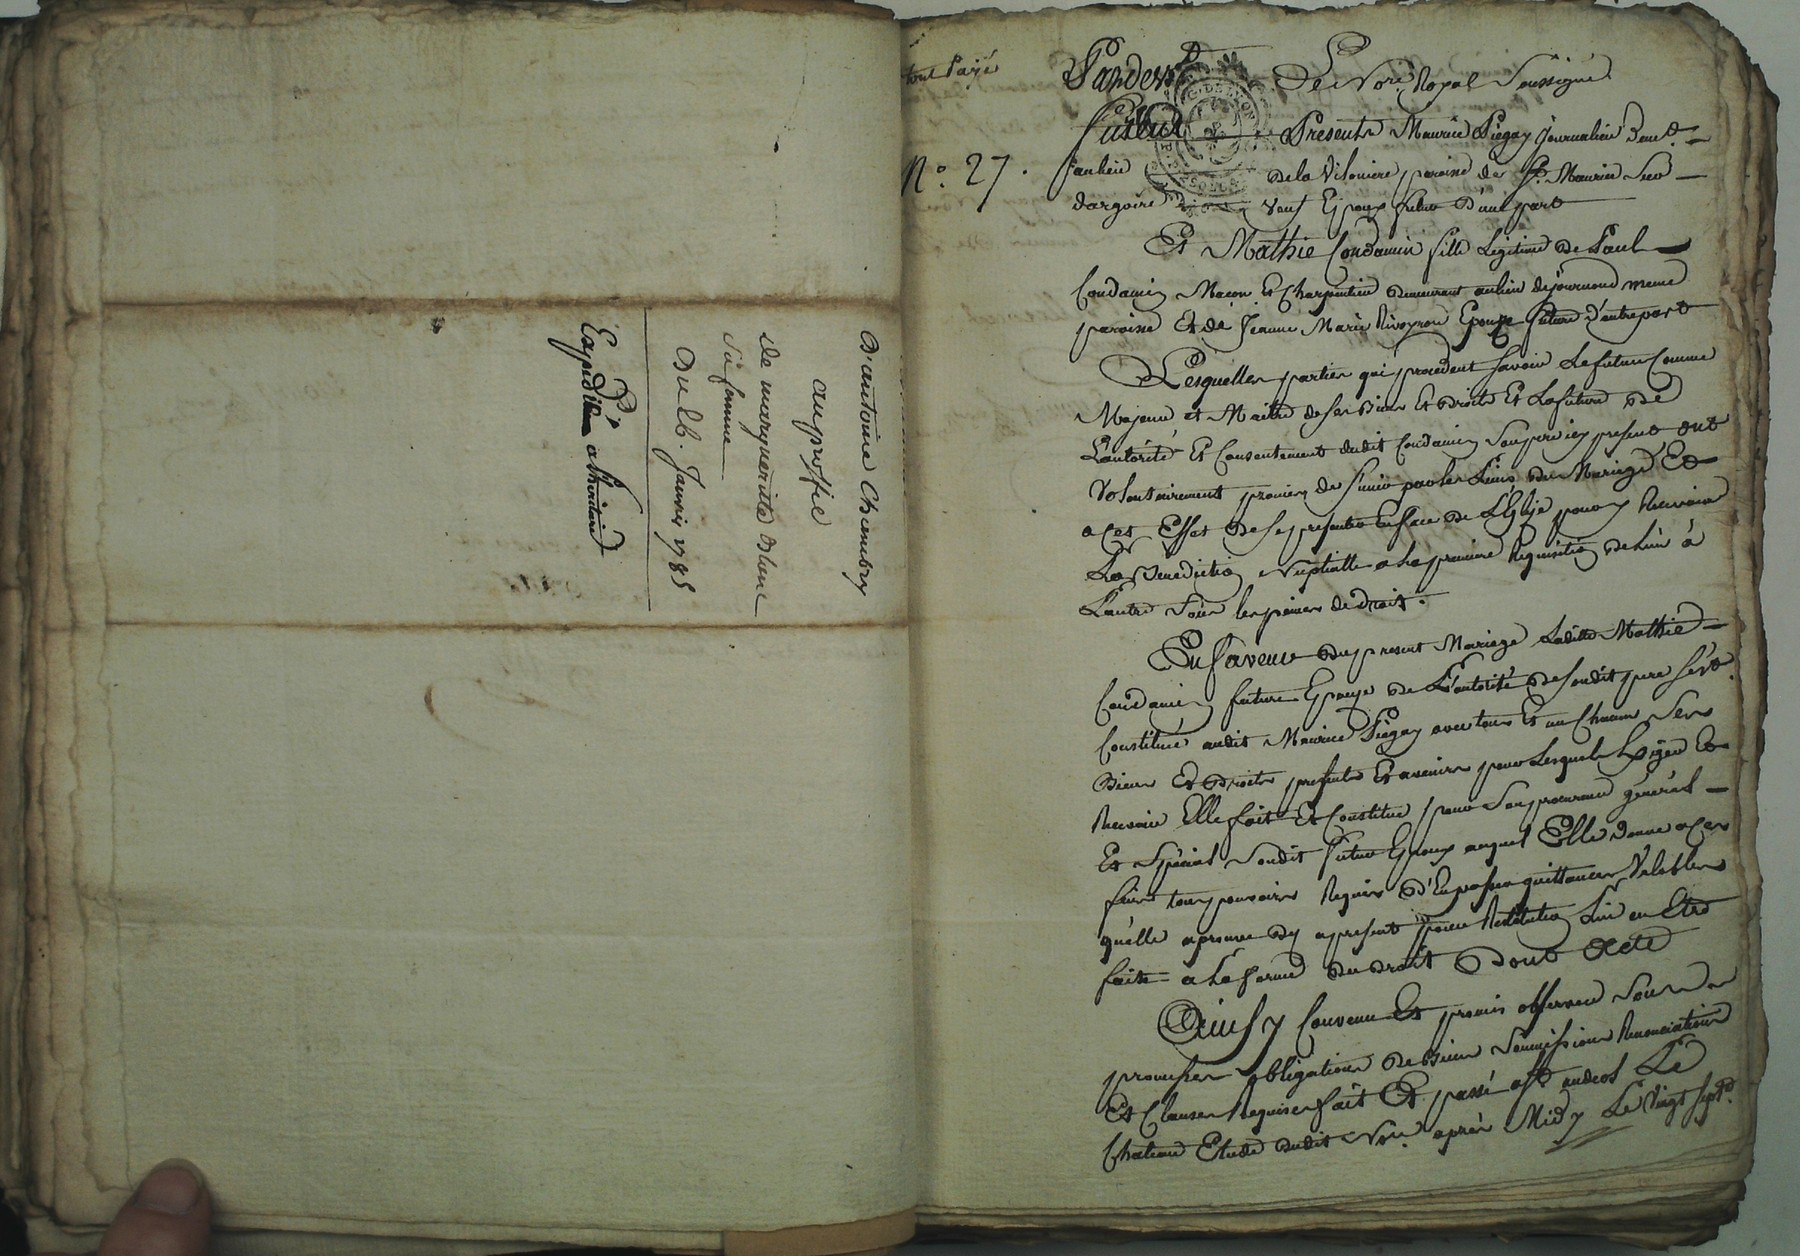 D'antoine Chambry
au profit
de margueritte blanc
sa femme
Du 6. Janvier 1785
Expédié
tout Payé
N.º 27.
Pardevt
fut
au lieu
dargoire
Le No.re Royal Soussigné
Présents Maurice Piegay journalier Dem.t
de la Viloniere paroisse de St. Maurice Sur
veuf Epoux futur d'une part
Et Mathie Condamin fille Légitime de Paul
Condamin Macon Et Charpentier demeurant au lieu de journoud meme
paroisse Et de Jeanne Marie Rivoyron Epouse future d'autre part
Lesquelles parties qui procedent savoir Le futur Comme
Majeur et Maitre de ses Biens Et droits Et La future de
L'autorité Et Consentement dudit Condamin Son pere icy present ont
Volontairement promis de s'unir par les Liens du Mariage Et
a Cet Effet de se presenter En face de L'Eglise pour y Recevoir
La Bénédiction Nuptialle a la premiere Requisition de L'un à
L'autre Sous les peines de droit.
En faveur du present Mariage Laditte Mathie
Condamin future Epouse de L'autorité de Sondit pere s'est
Constitué audit Maurice Piegay avec tous Et un Chacun Ses
Biens Et Droits presents Et avenirs pour Lesquels Exiger Et
Recevoir Elle fait Et Constitue pour Son procureur général
Et Spécial Sondit futur Epoux auquel Elle donne a Ces
fins tous pouvoirs Requis d'En passer quittances Valables
qu'elle aprouve dez apresent pour Restitution Lui en Etre
faite a La forme du droit Dont Acte
Ainsy Convenu Et promis observer Sous
promesses obligations de Biens Soumissions Renonciations
Et Clauses Requises fait Et passé a St. andeol Le
Chateau Etude dudit No.re après Midy Le Vingt Sept